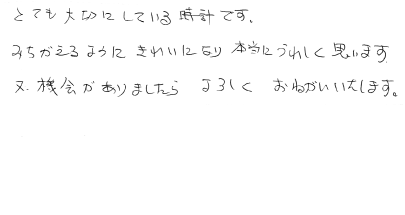 とても大切にしている時計です.
みちがえるように きれいになり 本当にうれしく思います
又. 機会がありましたら よろしく おねがいいたします。